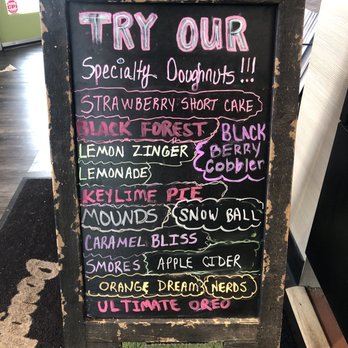 TRY OUR
Specialty Doughnuts!!!
STRAWBERRY SHORT CAKE
BLACK FOREST
BLACK
BERRY
Cobbler
LEMON ZINGER
LEMONADE
KEYLIME PIE
MOUNDS
SNOW BALL
CARAMEL BLISS
SMORES
APPLE CIDER
ORANGE DREAM
NERDS
ULTIMATE OREO